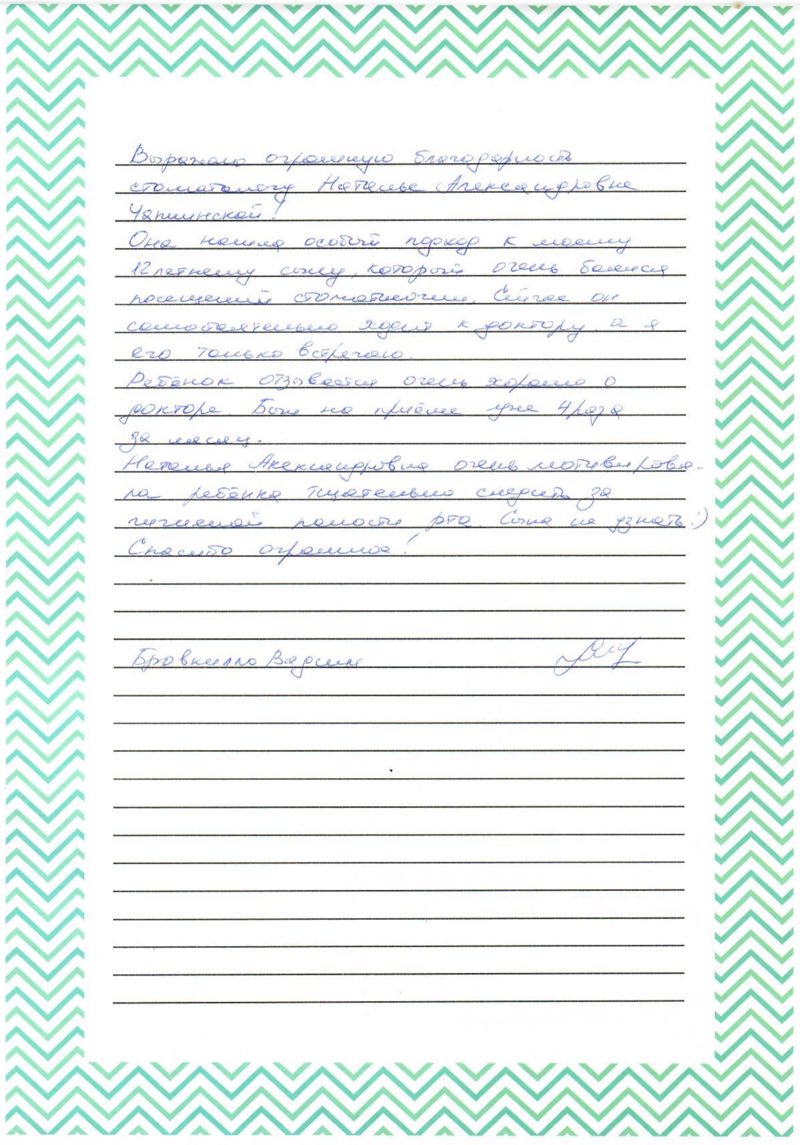 Выражаю огромную благодарность
стоматологу Наталье Александровне
Она нашла особый подход к моему
12летнему сыну, который очень боялся
посещений стоматологии. Сейчас он
самостоятельно ходит к доктору, а я
его только встречаю.
Ребёнок отзывается очень хорошо о
докторе. Были на приёме уже 4 раза
за месяц.
Наталья Александровна очень мотивирова-
ла ребёнка тщательно следить за
гигиеной полости рта. Сына не узнать :)
Спасибо огромное!
Вадим